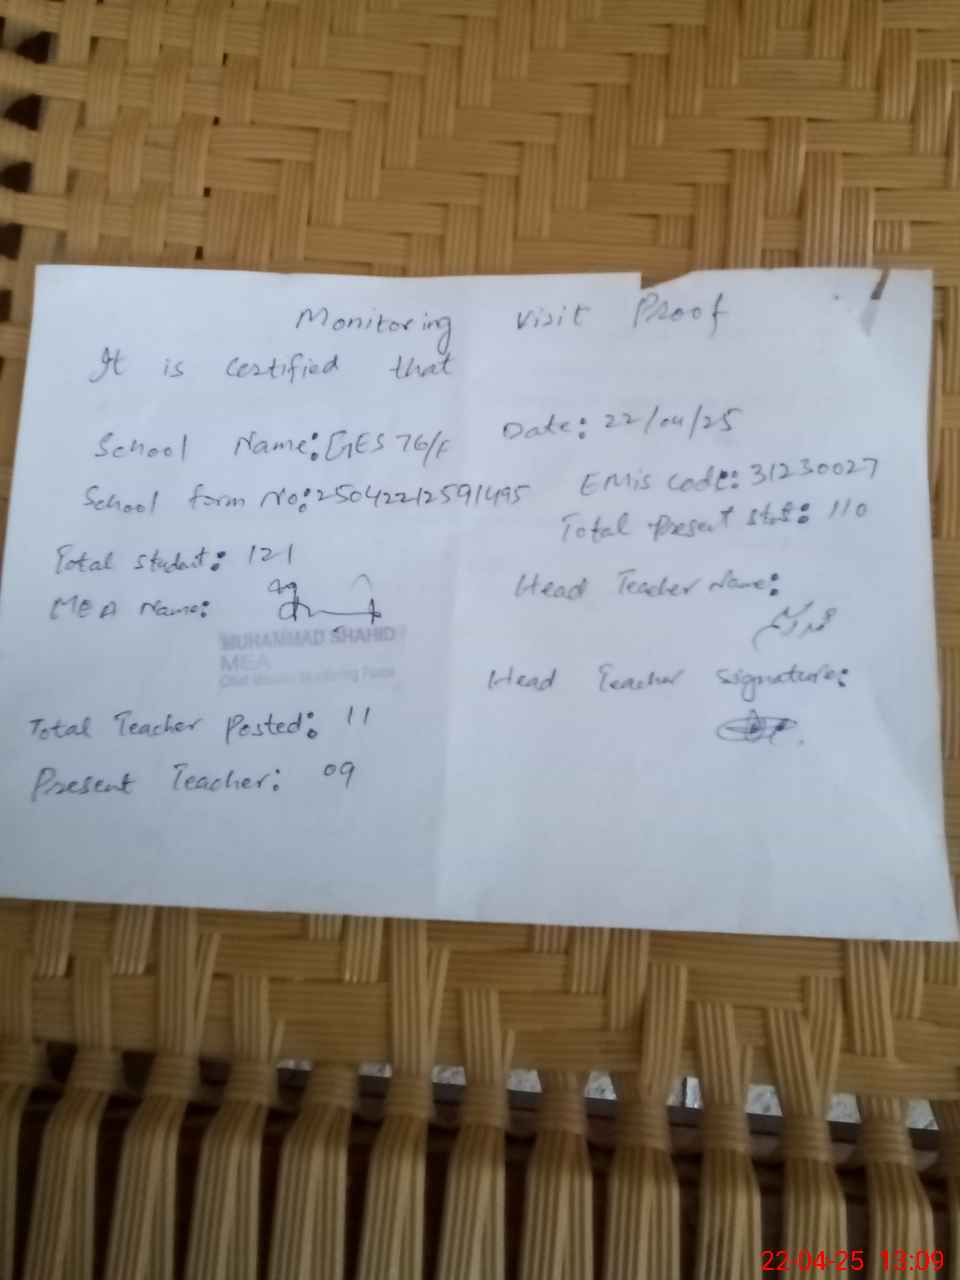 Monitoring visit Proof
It is certified that
School Name: GES 76/F
Date: 22/04/25
School form No: 25042212591495
EMis code: 31230027
Total student: 121
Total present stdt: 110
MEA Name:
MUHAMMAD SHAHID
MEA
Head Teacher Name:
Head Teacher Signature:
Total Teacher Posted: 11
Present Teacher: 09
22-04-25 13:09